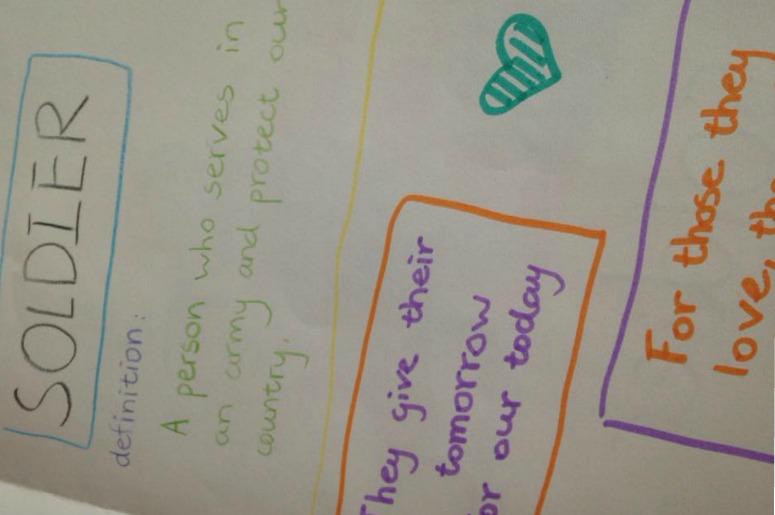 SOLDIER
definition:
A person who serves in
an army and protect our
country.
They give their
tomorrow
for our today
For those they
love,